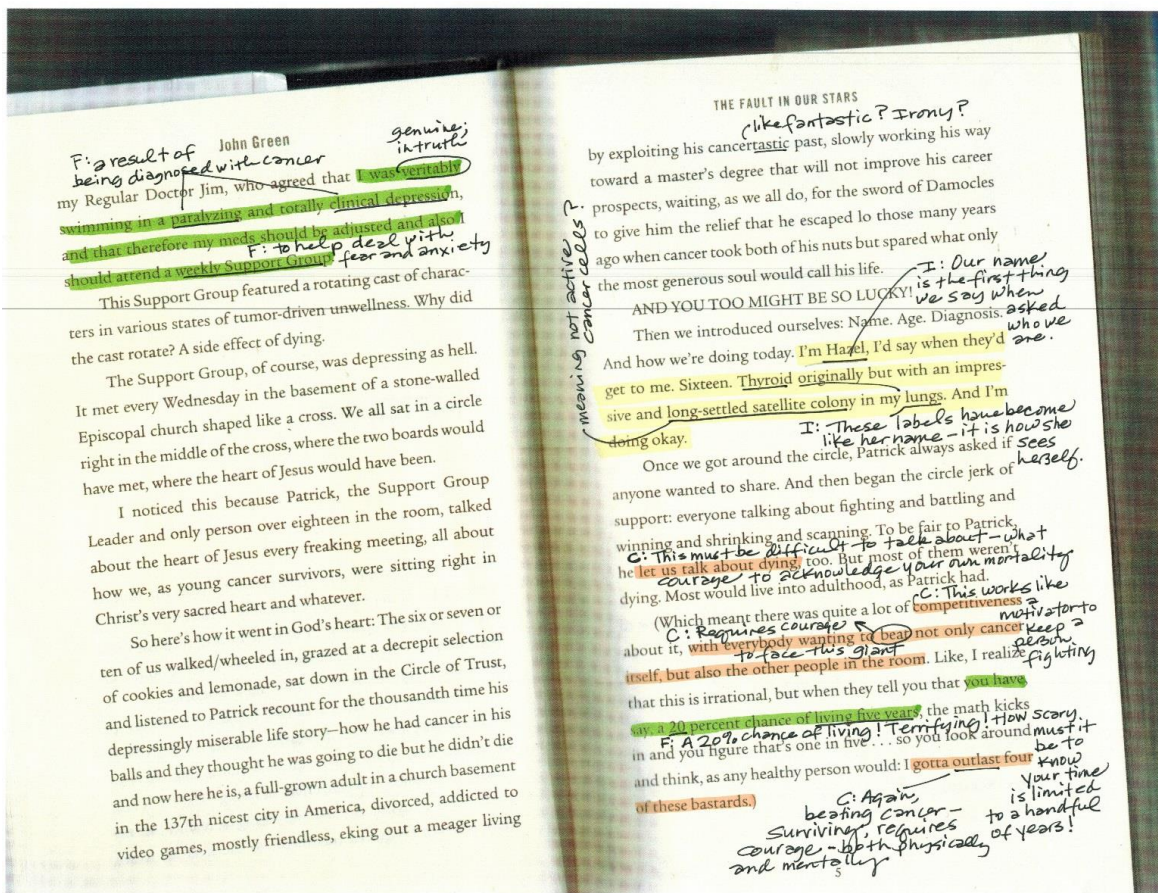 John Green
F: a result of
being diagnosed with cancer
genuine;
in truth
my Regular Doctor Jim, who agreed that I was veritably
swimming in a paralyzing and totally clinical depression,
and that therefore my meds should be adjusted and also I
F: to help deal with
fear and anxiety
should attend a weekly Support Group.
This Support Group featured a rotating cast of charac-
ters in various states of tumor-driven unwellness. Why did
the cast rotate? A side effect of dying.
The Support Group, of course, was depressing as hell.
It met every Wednesday in the basement of a stone-walled
Episcopal church shaped like a cross. We all sat in a circle
right in the middle of the cross, where the two boards would
have met, where the heart of Jesus would have been.
I noticed this because Patrick, the Support Group
Leader and only person over eighteen in the room, talked
about the heart of Jesus every freaking meeting, all about
how we, as young cancer survivors, were sitting right in
Christ's very sacred heart and whatever.
So here's how it went in God's heart: The six or seven or
ten of us walked/wheeled in, grazed at a decrepit selection
of cookies and lemonade, sat down in the Circle of Trust,
and listened to Patrick recount for the thousandth time his
depressingly miserable life story—how he had cancer in his
balls and they thought he was going to die but he didn't die
and now here he is, a full-grown adult in a church basement
in the 137th nicest city in America, divorced, addicted to
video games, mostly friendless, eking out a meager living
THE FAULT IN OUR STARS
like fantastic? Irony?
by exploiting his cancertastic past, slowly working his way
toward a master's degree that will not improve his career
prospects, waiting, as we all do, for the sword of Damocles
to give him the relief that he escaped lo those many years
ago when cancer took both of his nuts but spared what only
the most generous soul would call his life.
I: Our name
is the first thing
we say when
asked
who we
are.
AND YOU TOO MIGHT BE SO LUCKY!
Then we introduced ourselves: Name. Age. Diagnosis.
And how we're doing today. I'm Hazel, I'd say when they'd
get to me. Sixteen. Thyroid originally but with an impres-
sive and long-settled satellite colony in my lungs. And I'm
doing okay.
meaning not active
cancer cells?
I: These labels have become
like her name – it is how she
sees
herself.
Once we got around the circle, Patrick always asked if
anyone wanted to share. And then began the circle jerk of
support: everyone talking about fighting and battling and
winning and shrinking and scanning. To be fair to Patrick,
C: This must be difficult to talk about – what
he let us talk about dying, too. But most of them weren't
courage to acknowledge your own mortality
dying. Most would live into adulthood, as Patrick had.
C: This works like
a
motivator to
keep a
person
fighting
(Which meant there was quite a lot of competitiveness
C: Requires courage
about it, with everybody wanting to beat not only cancer
to face this giant
itself, but also the other people in the room. Like, I realize
that this is irrational, but when they tell you that you have,
say, a 20 percent chance of living five years, the math kicks
F: A 20% chance of living! Terrifying! How scary
must it
be to
know
your time
is limited
to a handful
of years!
in and you figure that's one in five . . . so you look around
and think, as any healthy person would: I gotta outlast four
of these bastards.)
C: Again,
beating cancer –
surviving, requires
courage – both physically
and mentally
5